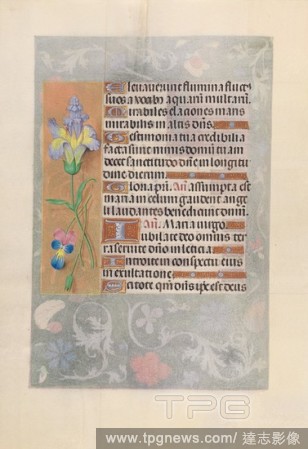 Elevaverunt flumina fluct⁹
suos a vocib⁹ aquarū multarū.
Mirabiles elaciones maris
mirabilis in altis dn̄s.
Testimonia tua credibilia
facta sunt nimis domū tuam
decet sanctitudo dn̄e in longitu
dine dierum.
Gloria pri. An̄. assumpta est
maria in celum gaudent ange
li laudantes benedicunt dn̄m.
An̄. Maria virgo.
Jubilate deo omnis ter
ra servite dn̄o in leticia.
Introite in conspectu eius
in exultacione.
Scitote qm̄ dn̄s ip̄e est deus
TPG
www.tpgnews.com/ 達志影像